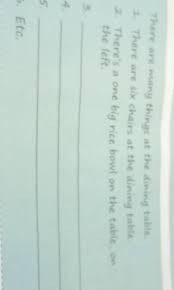 There are many things at the dining table.
1. There are six chairs at the dining table.
2. There's a one big rice bowl on the table, on
the left.
3.
4.
5
. Etc.